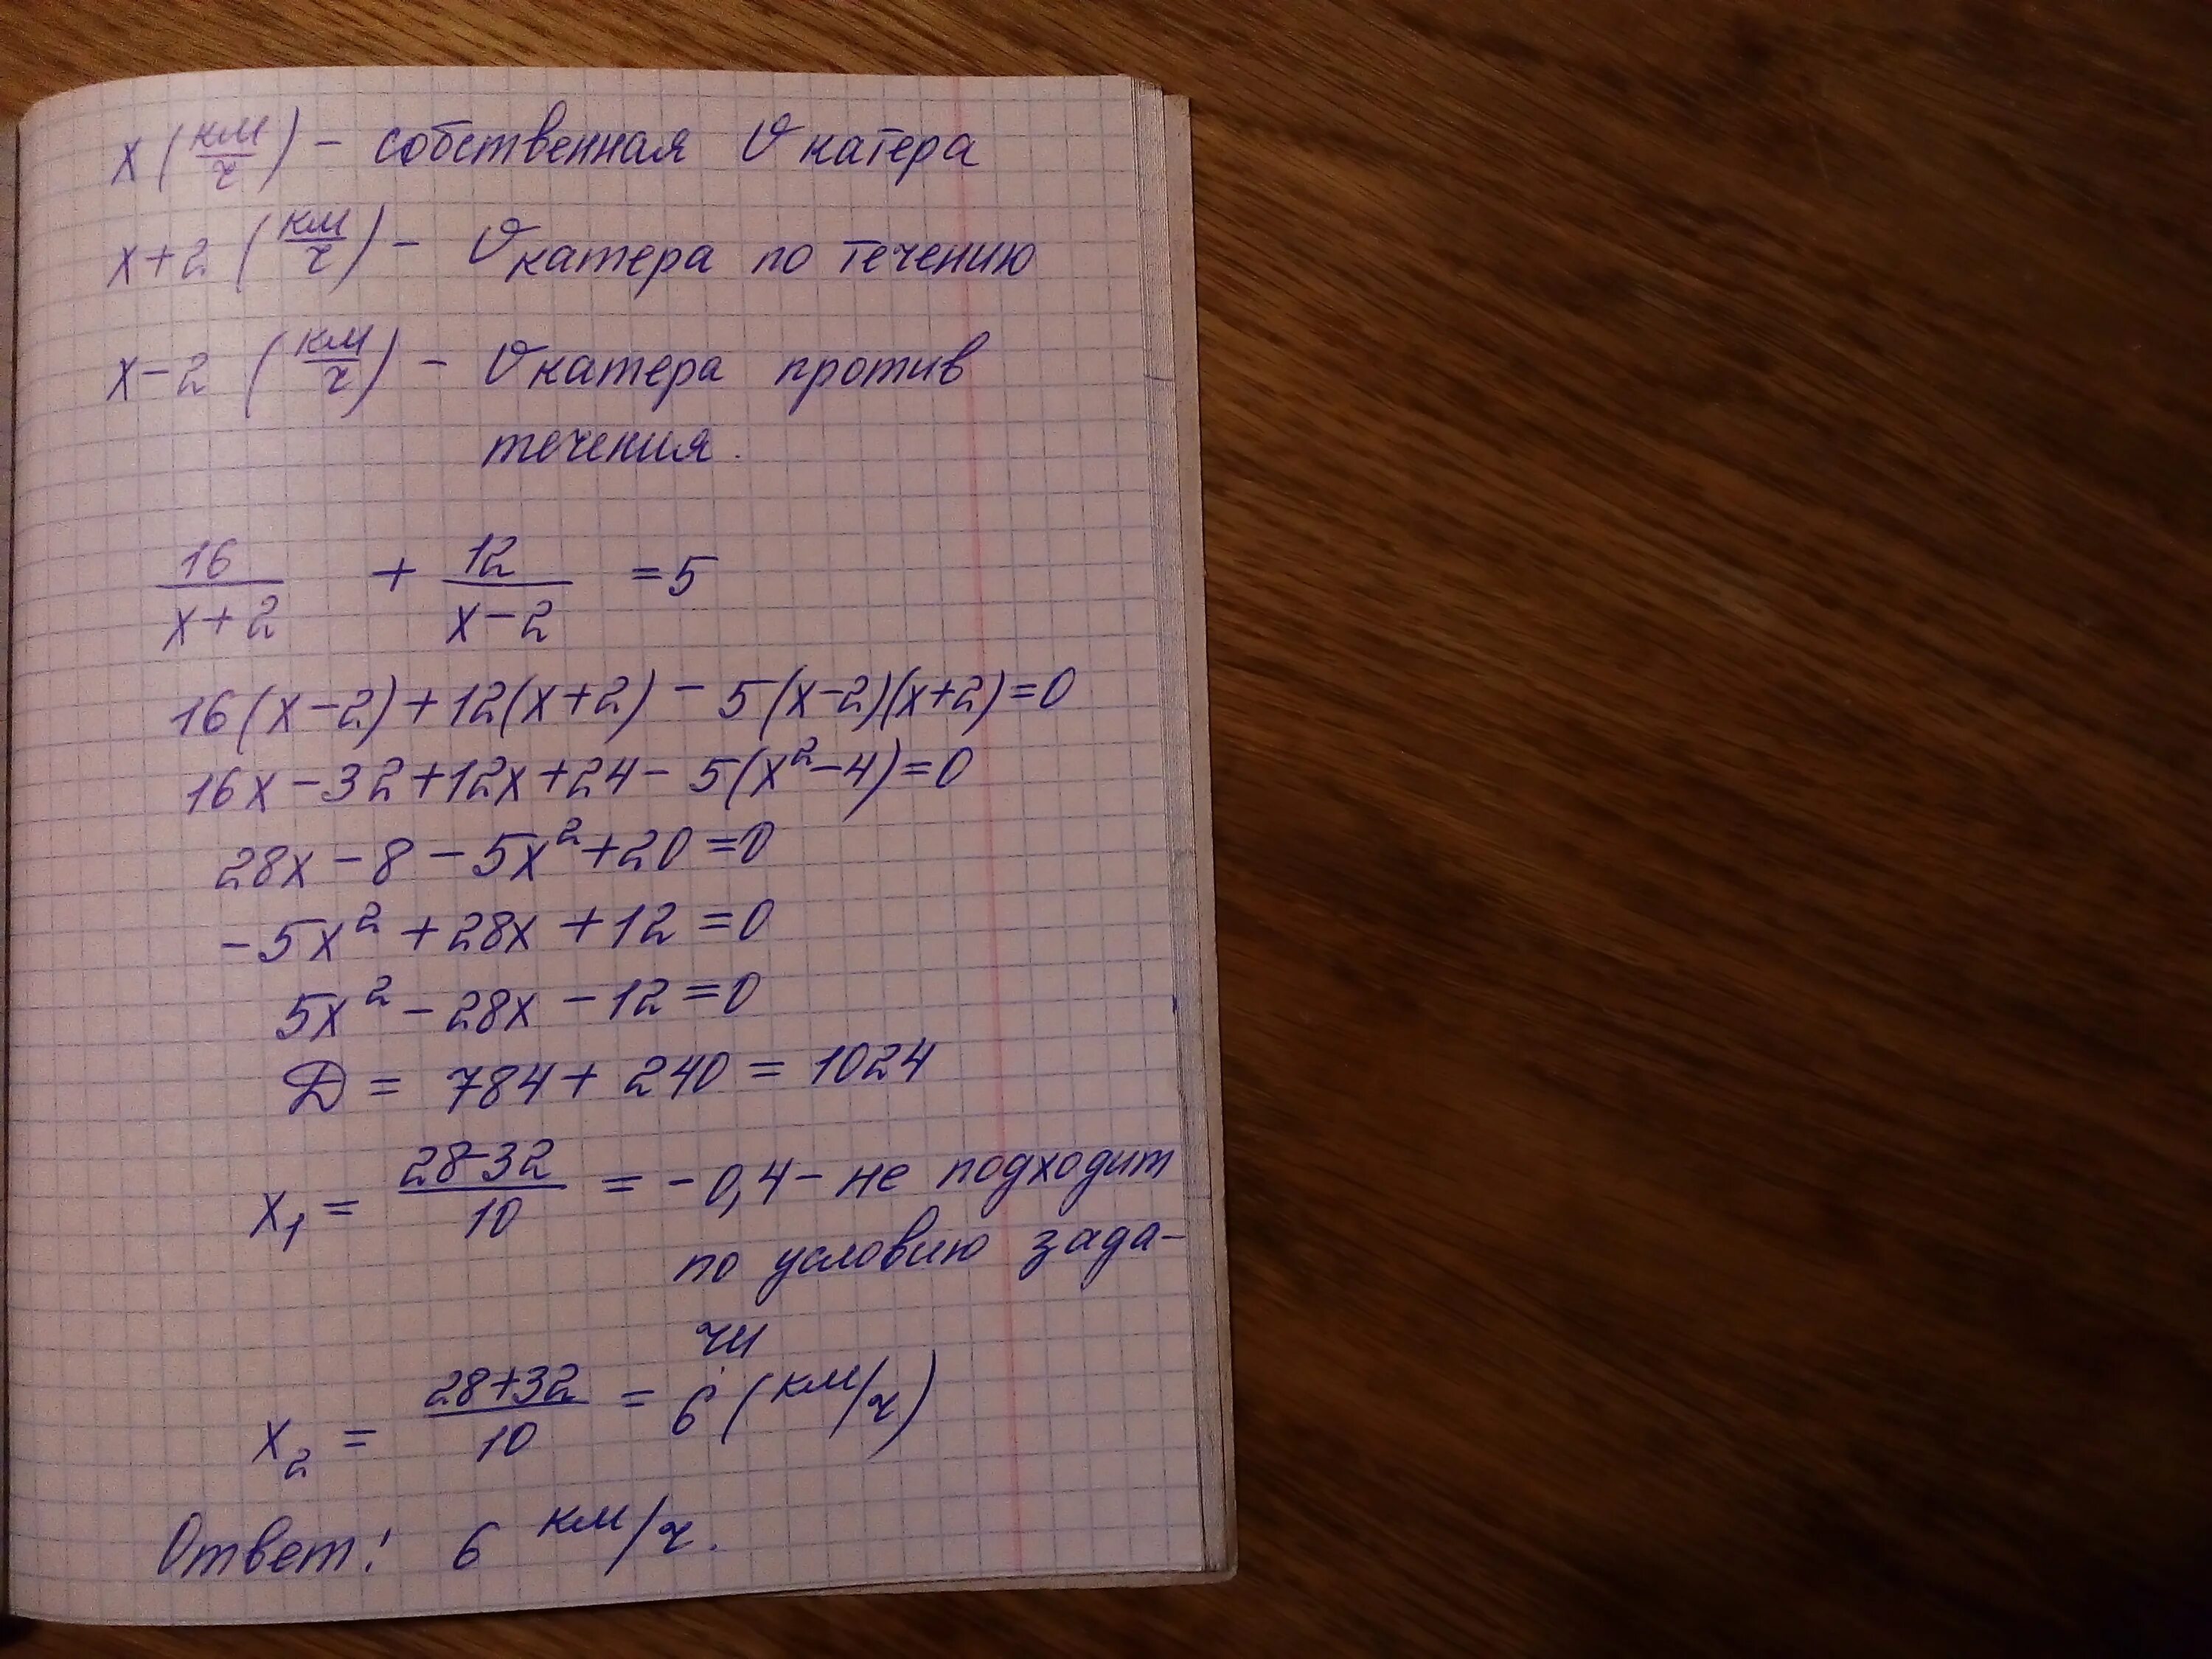 x (км/ч) – собственная v катера
x+2 (км/ч) – v катера по течению
x–2 (км/ч) – v катера против
течения.
16/(x+2) + 12/(x–2) = 5
16(x–2)+12(x+2) – 5(x–2)(x+2)=0
16x–32+12x+24– 5(x²–4)=0
28x–8–5x²+20=0
–5x²+28x+12=0
5x²–28x–12=0
D = 784+240 = 1024
x₁ = (28-32)/10 = –0,4– не подходит
по условию зада-
чи
x₂ = (28+32)/10 = 6 (км/ч)
Ответ: 6 км/ч.